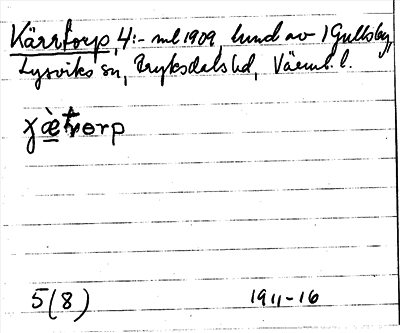 Kärrtorp, 4:- ml. 1909, lund av 1 Gullsby,
Lysviks sn, Fryksdals hd, Värml. l.
5(8) 1911-16